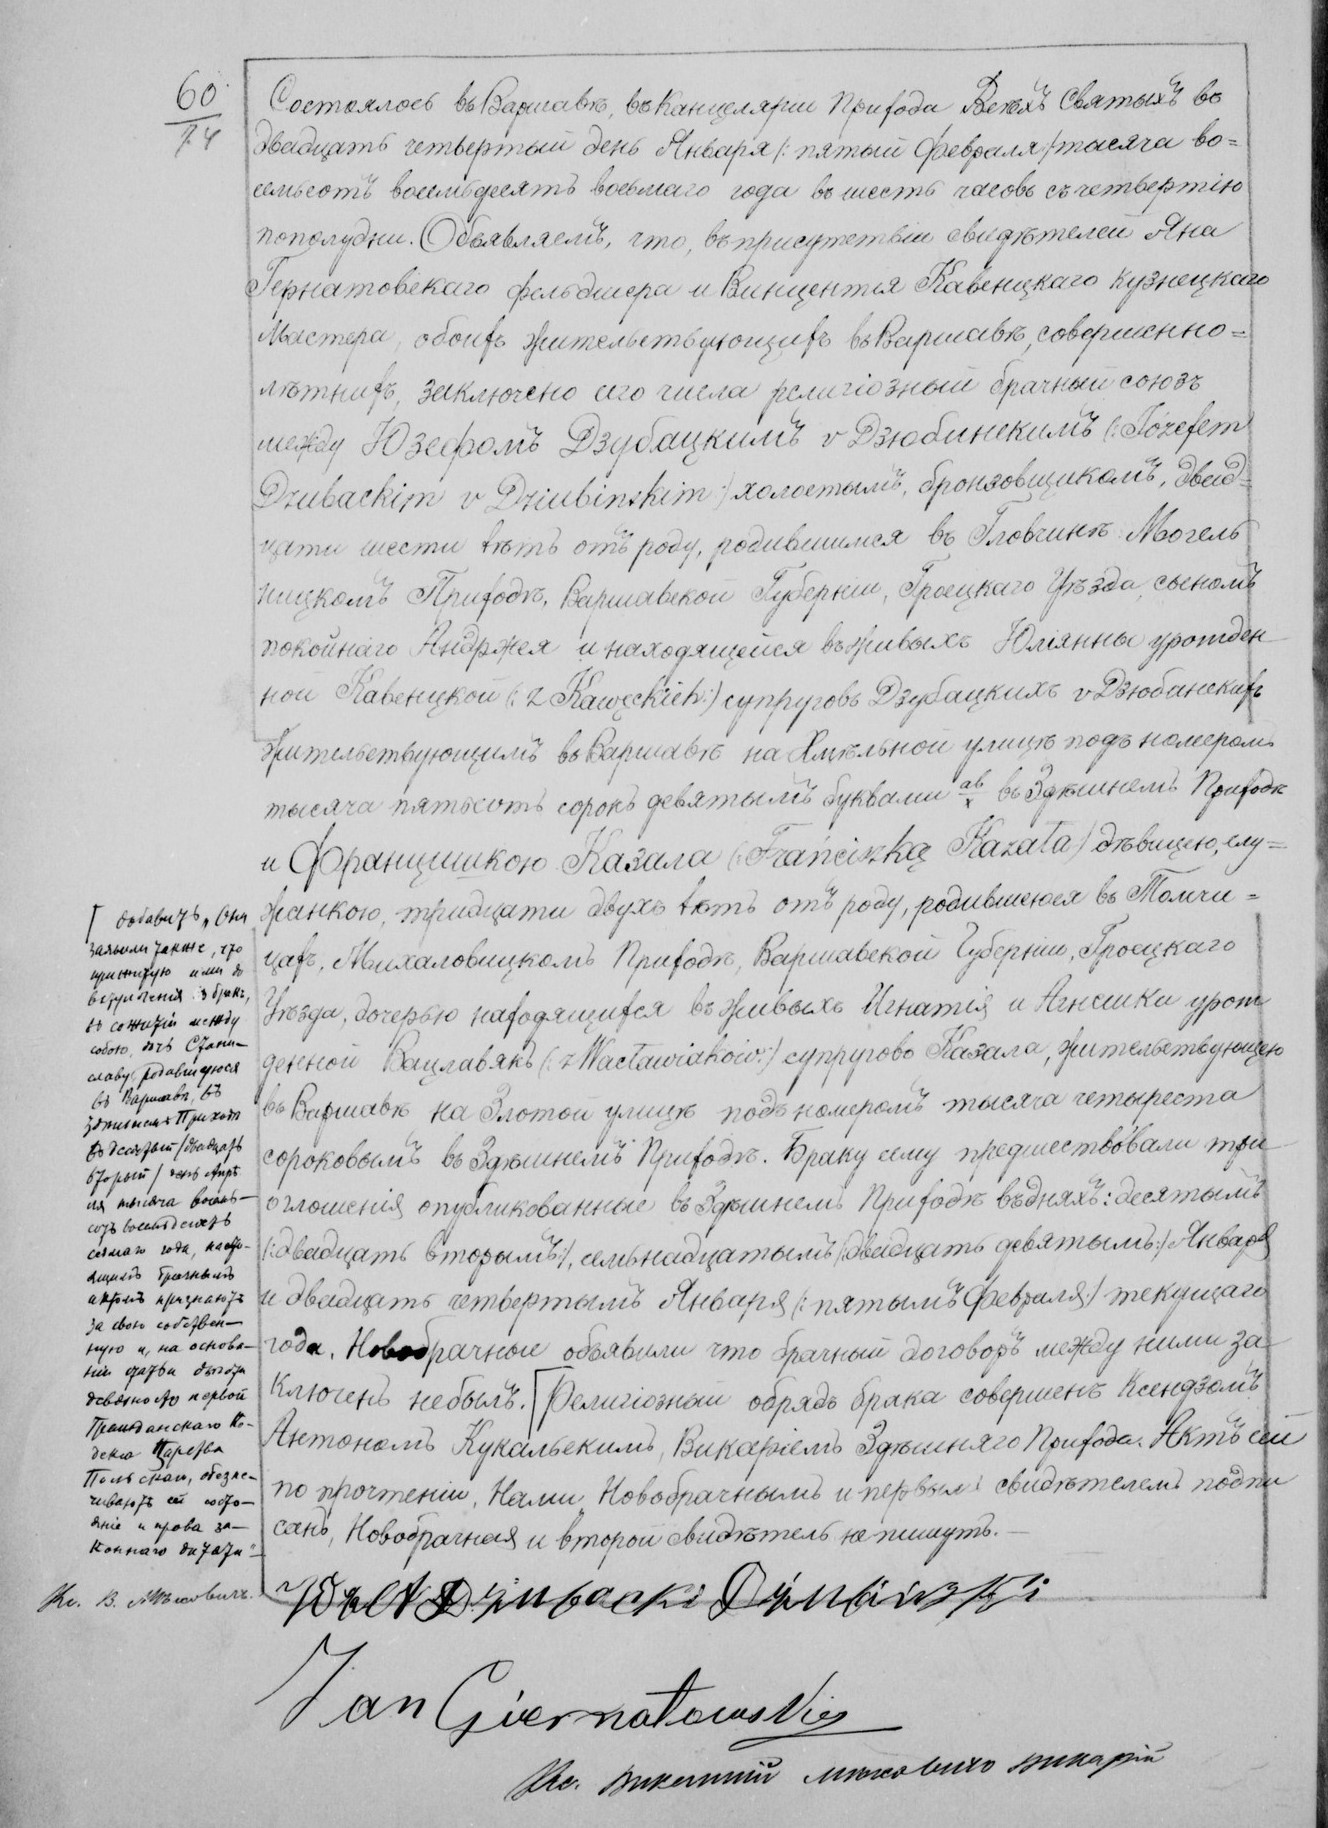 60
74
Состоялось въ Варшавѣ, въ Канцеляріи Прихода Всѣхъ Святыхъ въ
двадцать четвертый день Января /: пятый Февраля :/ тысяча во=
семьсотъ восемьдесятъ восьмаго года въ шесть часовъ съ четвертію
пополудни. Объявляемъ, что, въ присутствіи свидѣтелей Яна
Гернатовскаго фельдшера и Винцентія Кавенцкаго кузнецкаго
Мастера, обоихъ жительствующихъ въ Варшавѣ, совершенно=
лѣтнихъ, заключено сего числа религіозный брачный союзъ
между Юзефомъ Дзубацкимъ v Дзюбинскимъ (: Józefem
Dzubackim v Dziubinskim :) холостымъ, бронзовщикомъ, двад=
цати шести лѣтъ отъ роду, родившимся въ Гловчинѣ Могель
ницкомъ Приходѣ, Варшавской Губерніи, Гроецкаго Уѣзда, сыномъ
покойнаго Андржея и находящейся въ живыхъ Юліянны урожден
ной Кавенцкой (: z Kawęckich :) супруговъ Дзубацкихъ v Дзюбинскихъ
жительствующимъ въ Варшавѣ на Хмѣльной улицѣ подъ номеромъ
тысяча пятьсотъ сорокъ девятымъ буквами ab/x въ Здѣшнемъ Приходѣ
и Францишкою Казала (: Franciszką Kazała :) дѣвицею, слу=
жанкою, тридцати двухъ лѣтъ отъ роду, родившеюся въ Томчи=
цахъ, Михаловицкомъ Приходѣ, Варшавской Губерніи, Гроецкаго
Уѣзда, дочерью находящихся въ живыхъ Игнатія и Агнешки урож
денной Вацлавякъ (: z Wacławiaków :) супруговъ Казала, жительствующею
въ Варшавѣ на Злотой улицѣ подъ номеромъ тысяча четыреста
сороковымъ въ Здѣшнемъ Приходѣ. Браку сему предшествовали три
оглошенія опубликованные въ Здѣшнемъ Приходѣ въ дняхъ: десятымъ
(: двадцать вторымъ :), семьнадцатымъ (: двадцать девятымъ :) Января
и двадцать четвертымъ Января (: пятымъ Февраля :) текущаго
года. Новобрачные объявили что брачный договоръ между ними за
ключенъ небылъ. Религіозный обрядъ брака совершенъ Ксендзомъ
Антономъ Кукальскимъ, Викаріемъ Здѣшняго Прихода. Актъ сей
по прочтеніи, Нами, Новобрачнымъ и первымъ свидѣтелемъ подпи
санъ, Новобрачная и второй свидѣтель не пишутъ. —
добавить „Они
заявили также, что
прижитую ими до
вступленія въ бракъ,
въ сожитіи между
собою, дочь Стани—
славу, родившуюся
въ Варшавѣ, въ
здѣшнемъ Приходѣ
въ десятый / двадцать
второй / день Апрѣ
ля тысяча восемь—
сотъ восемьдесятъ
седьмаго года, насто—
ящимъ брачнымъ
актомъ признаютъ
за свою собствен—
ную и, на основа—
ніи статьи двѣсти
девяносто первой
Гражданскаго Ко—
декса Царства
Польскаго, обезпе—
чиваютъ ей состо—
яніе и права за—
коннаго дитяти“—
Кс. В. Мѣховичъ.
Józef Dzubacki Dziubiński
Jan Giernatowski
Кс. Викентій Мѣховичъ викарій